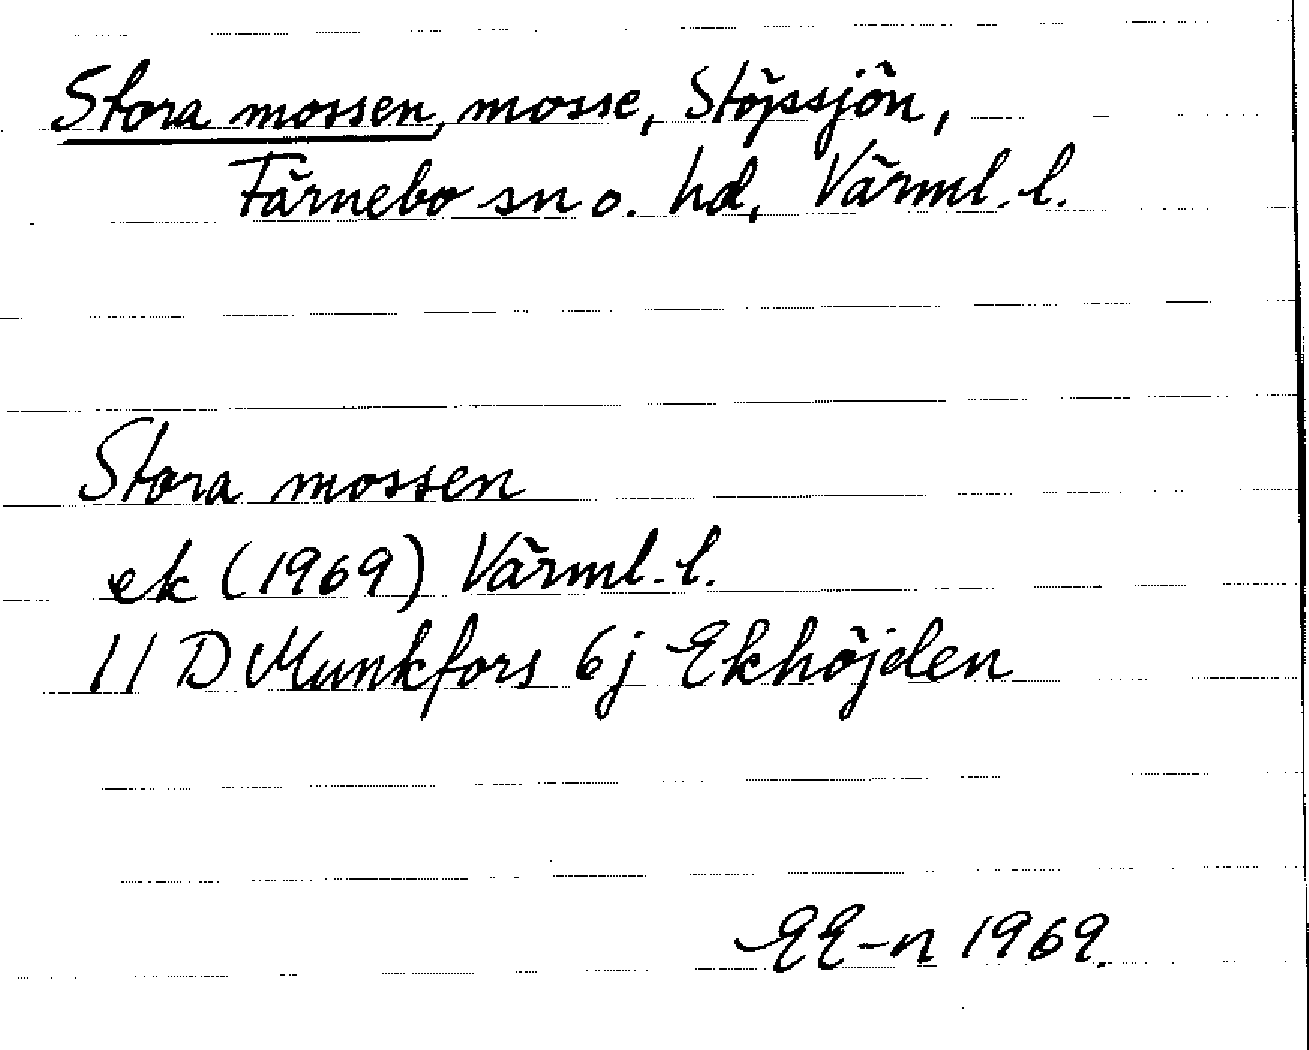 Stora mossen, mosse, Stöpssjön,
Färnebo sn o. hd, Värml. l.
Stora mossen
ek (1969) Värml. l.
11 D Munkfors 6j Ekhöjden
EE-n 1969.